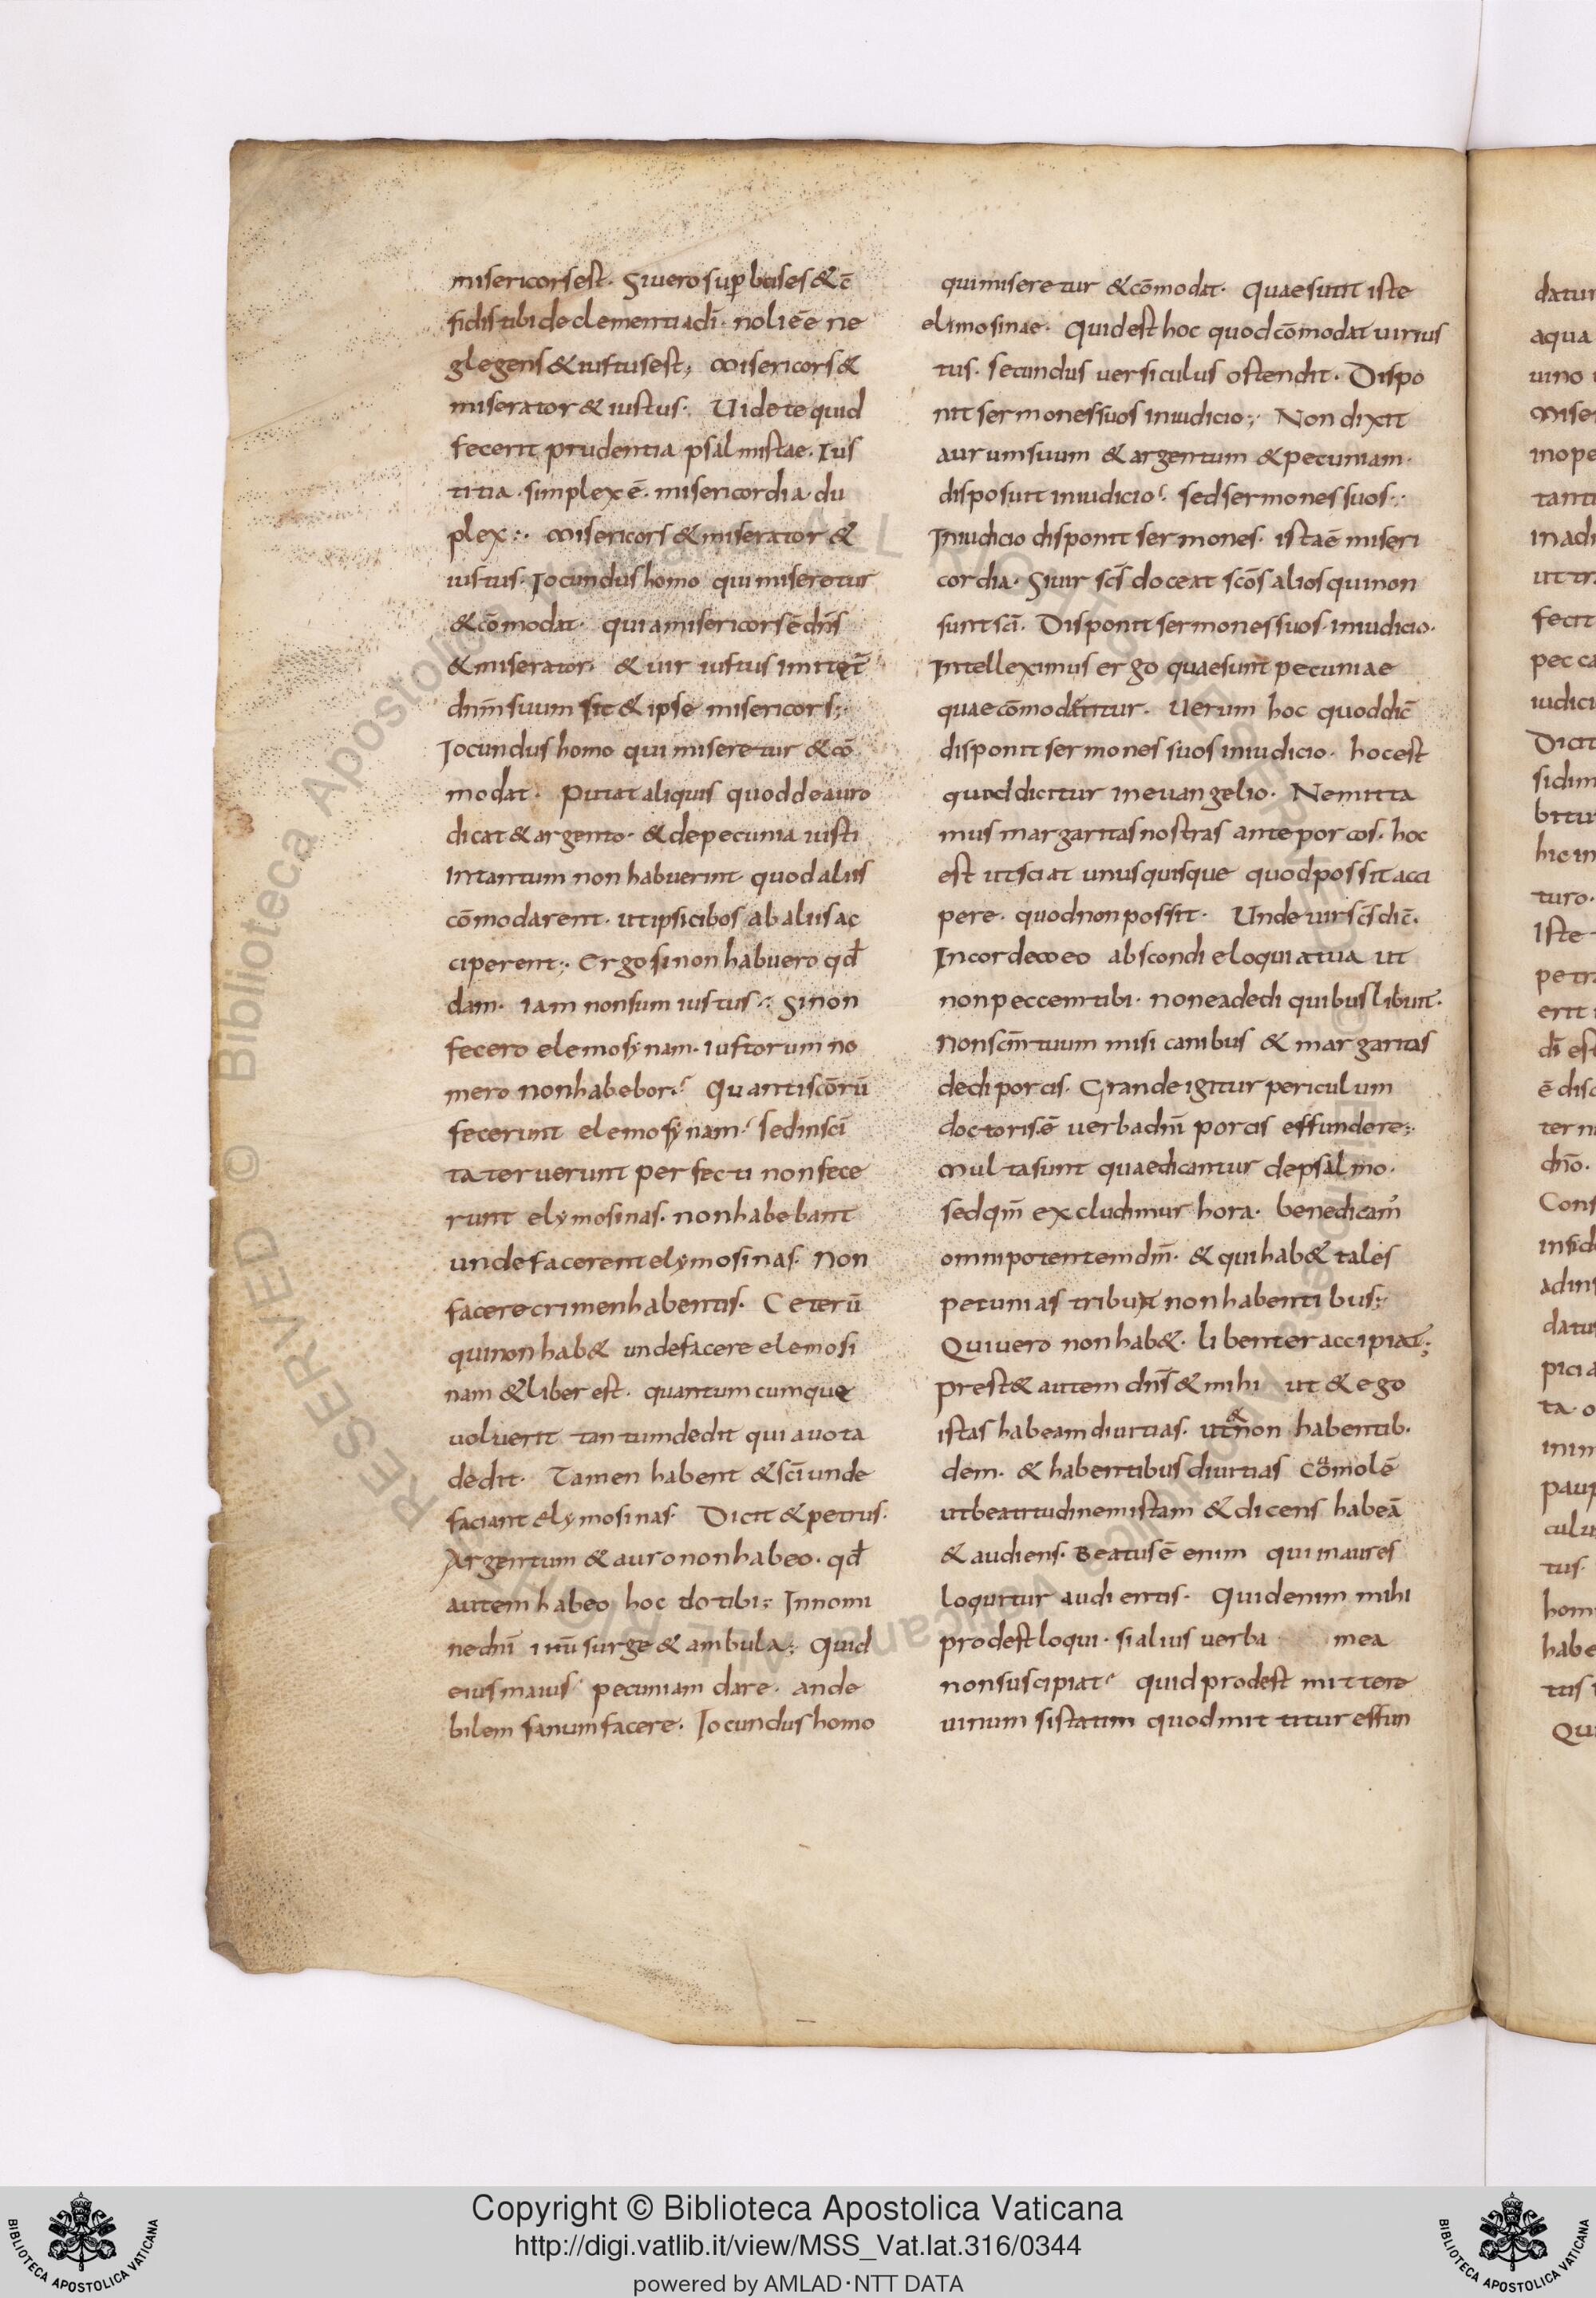 misericors est. Si uero sup bises & c̄
fidis tibi de clementia dī. noli ēe ne
glegens & iustus est; misericors &
miserator & iustus. Uidete quid
fecerit prudentia psalmistae. Ius
titia simplex ē. misericordia du
plex:. misericors & miserator &
iustus. Iocundus homo qui miseretur
& cōmodat. quia misericors ē dn̄s
& miserator. & uir iustus imitet̄
dnm̄ suum sit & ipse misericors;.
Iocundus homo qui miseretur & cō
modat. Putat aliquis quod de auro
dicat & argento. & de pecunia iusti
Intantum non habuerint quod aliis
cōmodarent. ut ipsi cibos ab aliis ac
ciperent;. Ergo si non habuero qd̄
dam. iam non sum iustus? Si non
fecero elemosynam. iustorum no
mero non habebor? Quanti scōrū
fecerunt elemosynam? sed in scī
tate ruerunt perfecti non fece
runt elymosinas. non habebant
unde facerent elymosinas. Non
facere crimen habentis. Ceterū
qui non hab& unde facere elemosi
nam & liber est. quantumcumque
uoluerit tantum dedit qui a uota
dedit. Tamen habent & scī unde
faciant elymosinas. Dicit & petrus.
Argentum & auro non habeo. qd̄
autem habeo hoc do tibi; In nomi
ne dnī ihū surge & ambula;. Quid
eius maius? pecuniam dare. an de
bilem sanum facere. Iocundus homo
qui miseretur & cōmodat. Quae sunt iste
elimosinae. Quid est hoc quod cōmodat uir ius
tus. secundus uersiculus ostendit. Dispo
nit sermones suos in iudicio;. Non dixit
aurum suum & argentum & pecuniam.
disposuit in iudicio? sed sermones suos:.
In iudicio disponit sermones. ista ē miseri
cordia. Si uir scs̄ doceat scōs alios qui non
sunt scī. Disponit sermones suos in iudicio.
Intelleximus ergo quae sunt pecuniae
quae cōmodentur. Uerum hoc quod dic̄
disponit sermones suos in iudicio. hoc est
quod dicitur in euangelio. Ne mitta
mus margaritas nostras ante porcos. hoc
est ut sciat unusquisque quod possit acci
pere. quod non possit. Unde uir scs̄ dic̄.
In corde meo abscondi eloquia tua ut
non peccem tibi. non ea dedi quibuslibuit.
Non scm̄ tuum misi canibus & margaritas
dedi porcis. Grande igitur periculum
doctoris ē uerba dnī porcis effundere;.
Multa sunt quae dicantur de psalmo.
sed qm̄ excludimur hora. benedicam'
omnipotentem dm̄. & qui hab& tales
pecunias tribuat non habentibus;.
Qui uero non hab&. libenter accipiat;
Prest& autem dn̄s & mihi ut & ego
istas habeam diuitias. ut & non habentib.
dem. & habentibus diuitias cōmolē
ut beatitudinem istam & dicens habeā
& audiens. Beatus ē enim qui in aures
loquitur audientis. Quid enim mihi
prodest loqui. si alius uerba mea
non suscipiat? quid prodest mittere
uinum si statum quod mittitur effun